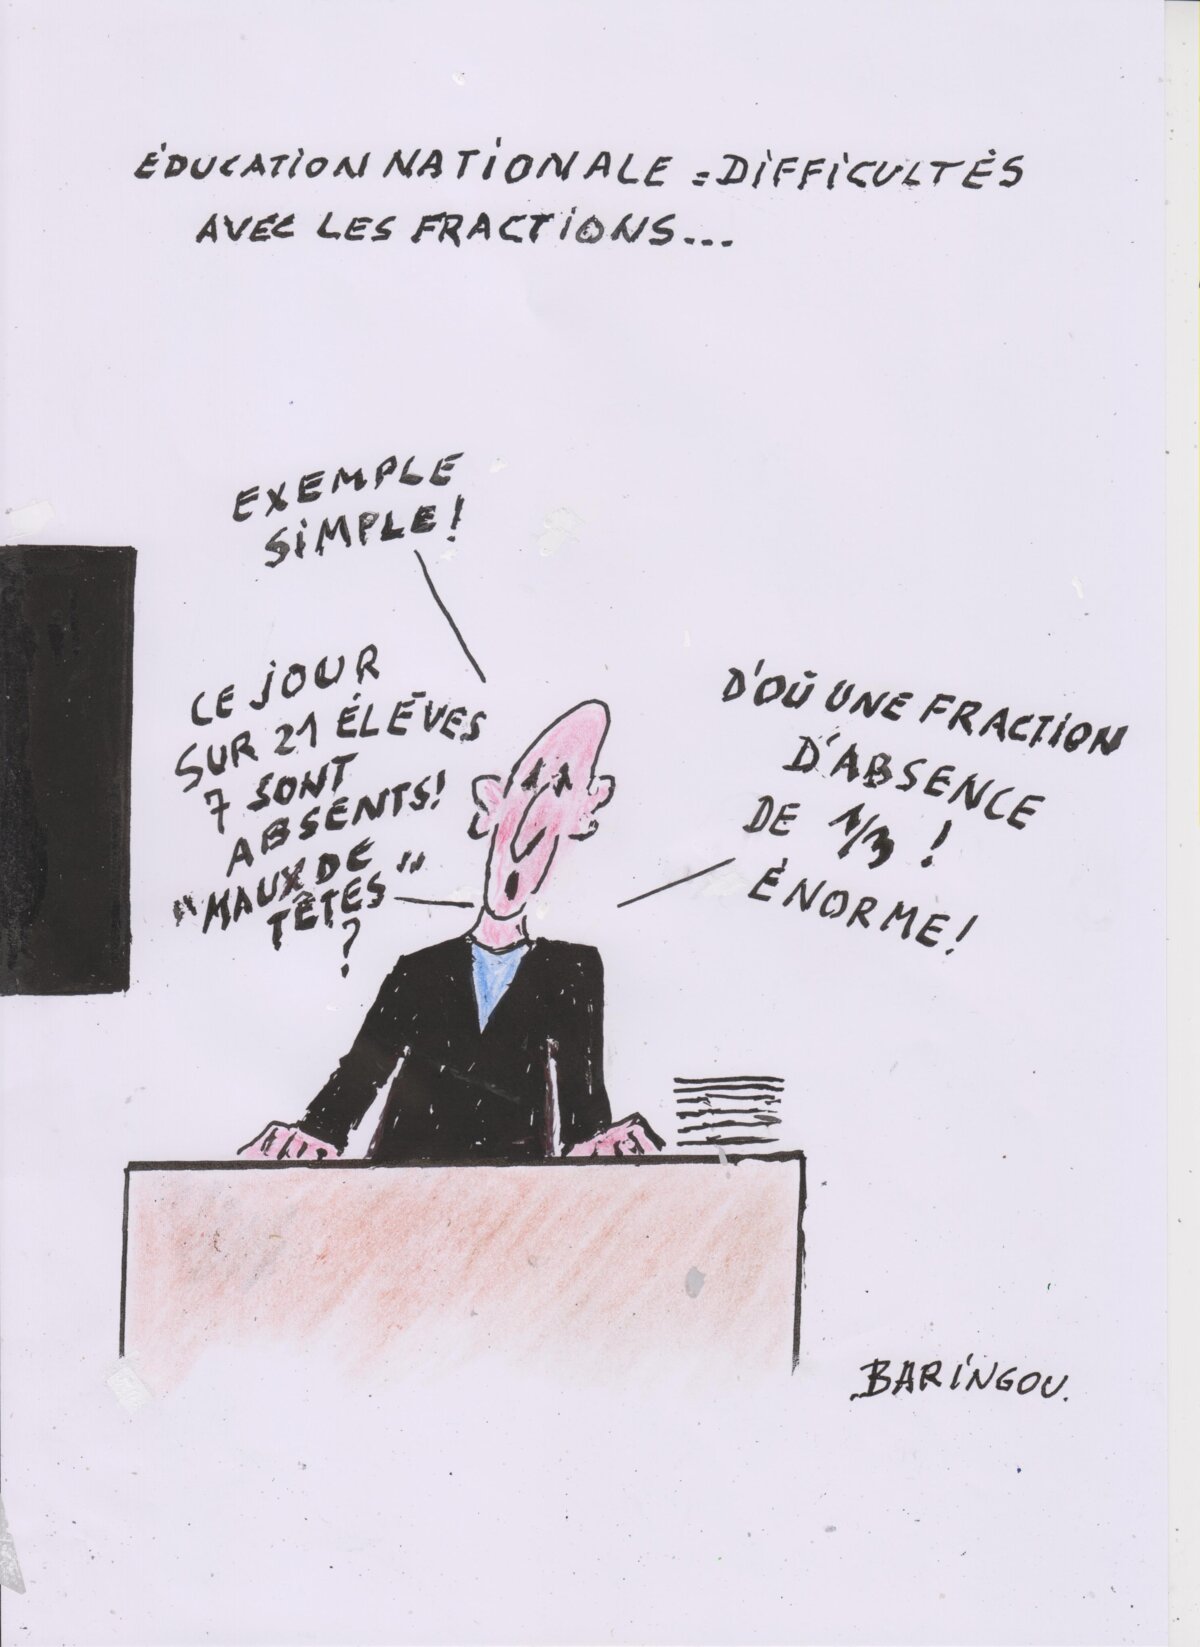 ÉDUCATION NATIONALE = DIFFICULTÉS
AVEC LES FRACTIONS...
EXEMPLE
SIMPLE!
CE JOUR
SUR 21 ÉLÉVES
7 SONT
ABSENTS!
"MAUX DE
TÊTES"
?
D'OÙ UNE FRACTION
D'ABSENCE
DE 1/3 !
ÉNORME!
BARINGOU.